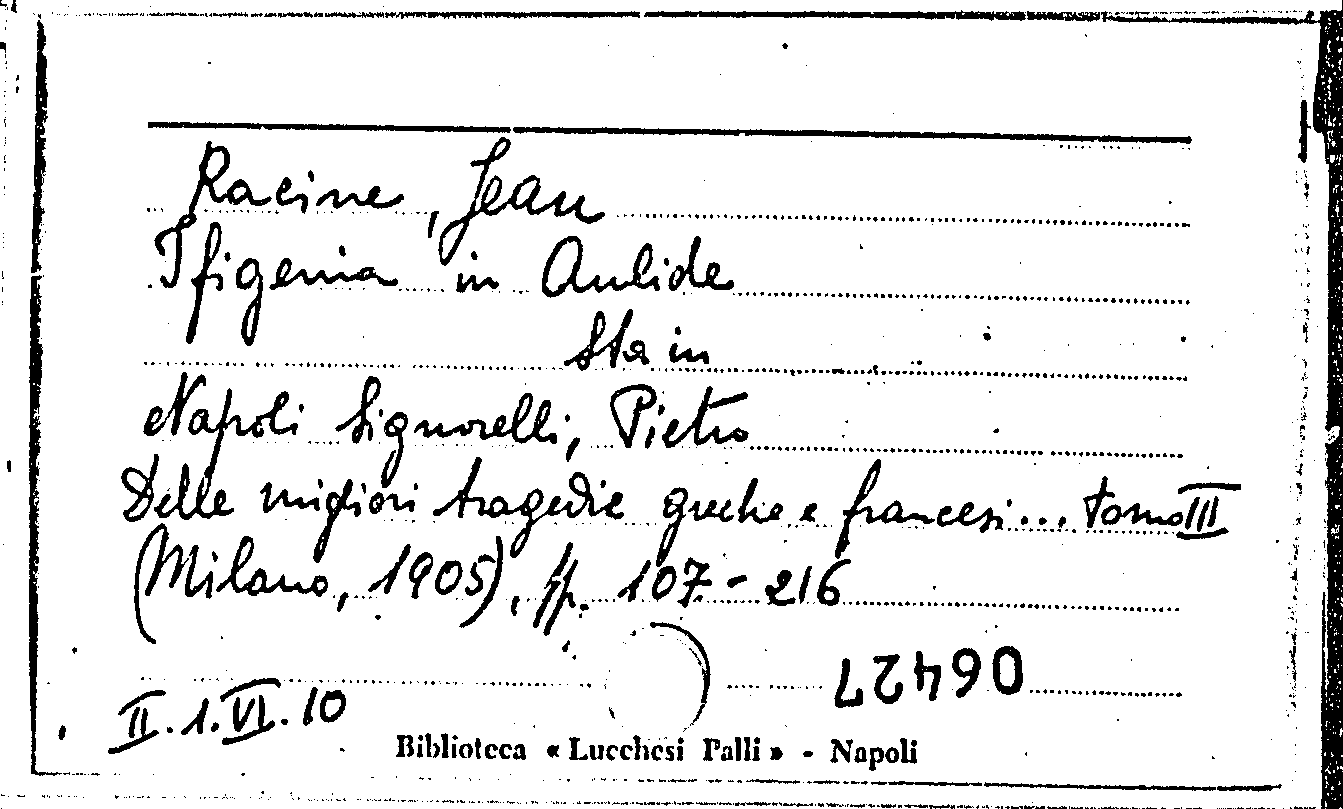 Racine, Jean
Ifigenia in Aulide
Sta in
Napoli Signorelli, Pietro
Delle migliori tragedie greche e francesi... tomo III
(Milano, 1905), pp. 107-216
06427
II.1.VI.10
Biblioteca « Lucchesi Palli » - Napoli